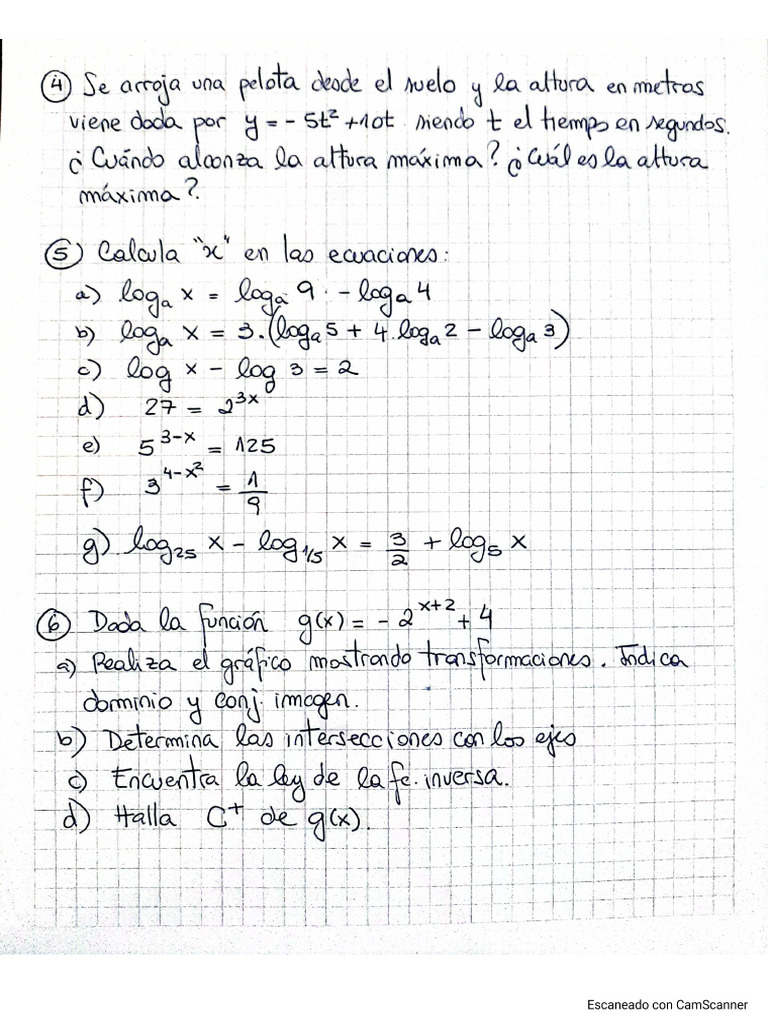 ④ Se arroja una pelota desde el suelo y la altura en metros
viene dada por y = - 5t² + 10t siendo t el tiempo en segundos.
¿Cuándo alcanza la altura máxima? ¿Cuál es la altura
máxima?
⑤ Calcula "x" en las ecuaciones:
a) logₐ x = logₐ 9 - logₐ 4
b) logₐ x = 3.(logₐ 5 + 4.logₐ 2 - logₐ 3)
c) log x - log 3 = 2
d) 27 = 2^{3x}
e) 5^{3-x} = 125
f) 3^{4-x²} = 1/9
g) log₂₅ x - log_{1/5} x = 3/2 + log₅ x
⑥ Dada la función g(x) = - 2^{x+2} + 4
a) Realiza el gráfico mostrando transformaciones. Indica
dominio y conj. imagen.
b) Determina las intersecciones con los ejes
c) Encuentra la ley de la fc. inversa.
d) Halla C⁺ de g(x).
Escaneado con CamScanner